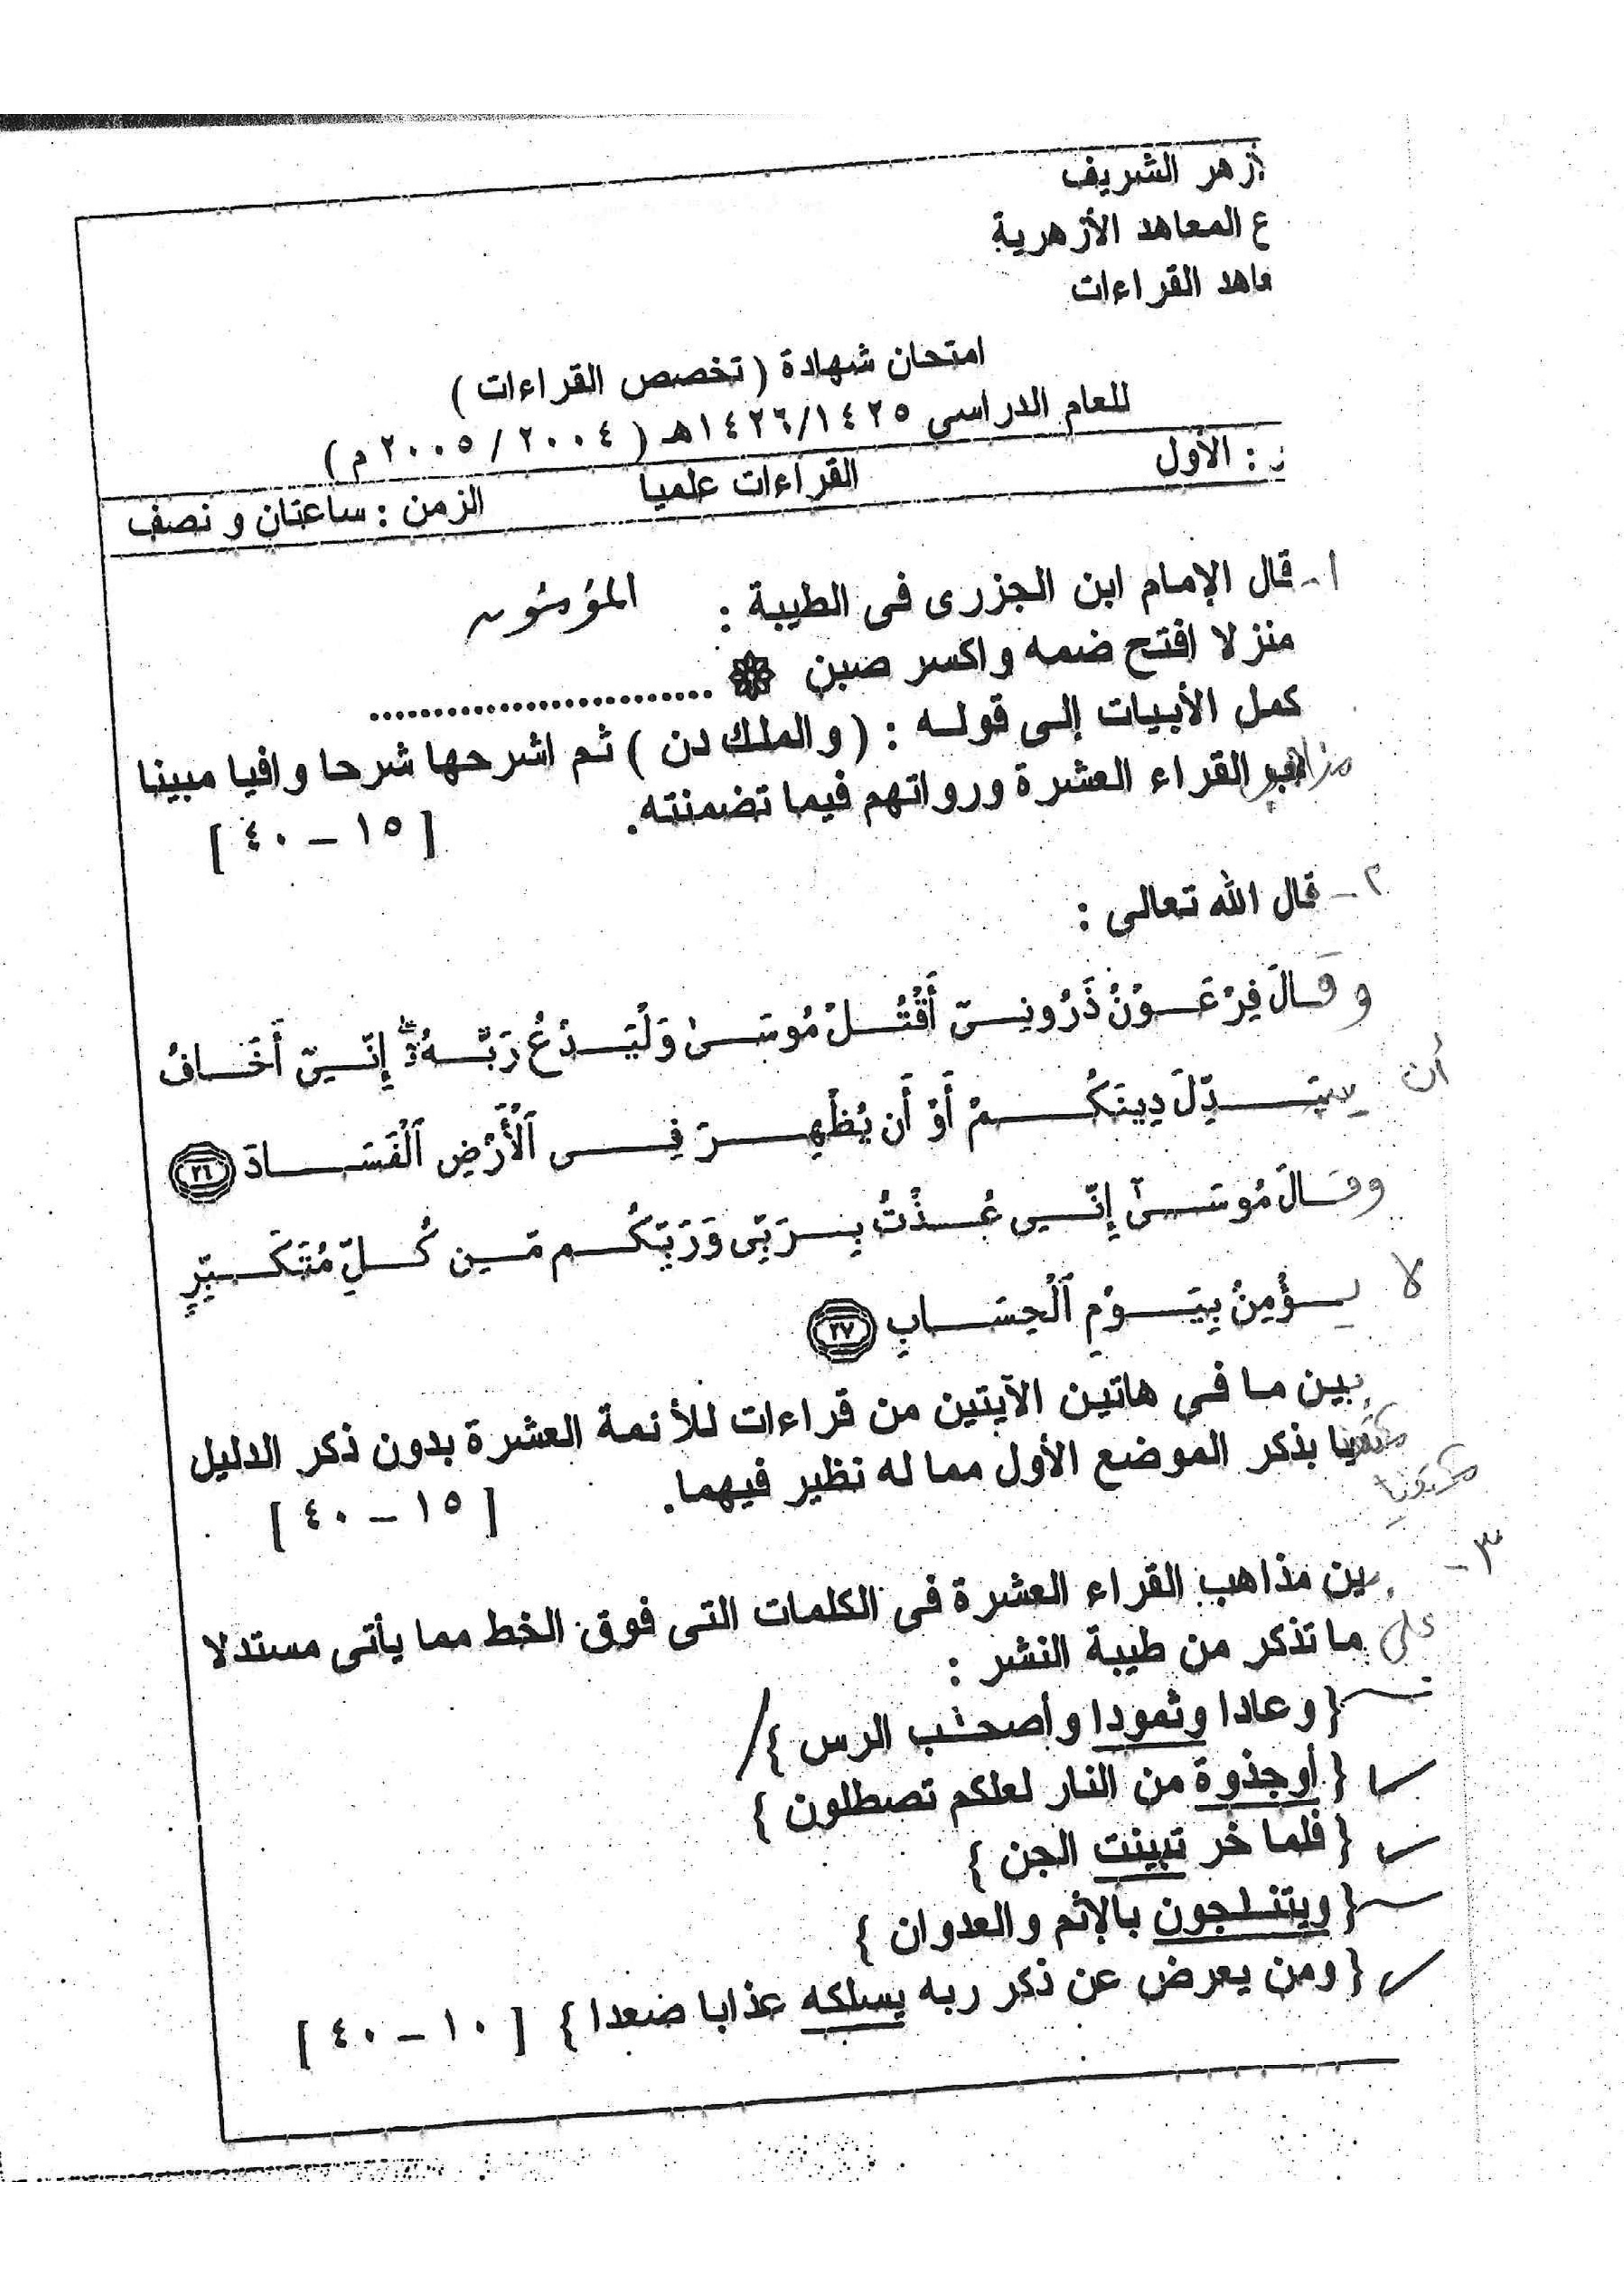 لأزهر الشريف
ع المعاهد الأزهرية
عاهد القراءات
امتحان شهادة ( تخصص القراءات )
للعام الدراسى ١٤٢٦/١٤٢٥هـ ( ٢٠٠٤ / ٢٠٠٥ م )
ر : الأول القراءات علميا الزمن : ساعتان و نصف
١- قال الإمام ابن الجزرى فى الطيبة : المؤمنون
منزلا افتح ضمه واكسر صبن ❁ ...........................
كمل الأبيات إلى قوله : ( والملك دن ) ثم اشرحها شرحا وافيا مبينا
مذاهب القراء العشرة ورواتهم فيما تضمنته.
[ ١٥ – ٤٠ ]
٢- قال الله تعالى :
وَقَالَ فِرْعَوْنُ ذَرُونِىٓ أَقْتُلْ مُوسَىٰ وَلْيَدْعُ رَبَّهُۥٓ ۖ إِنِّىٓ أَخَافُ
أن يُبَدِّلَ دِينَكُمْ أَوْ أَن يُظْهِرَ فِى ٱلْأَرْضِ ٱلْفَسَادَ ٢٦
وقَالَ مُوسَىٰٓ إِنِّى عُذْتُ بِرَبِّى وَرَبِّكُم مِّن كُلِّ مُتَكَبِّرٍ
لا يُؤْمِنُ بِيَوْمِ ٱلْحِسَابِ ٢٧
بين ما في هاتين الآيتين من قراءات للأئمة العشرة بدون ذكر الدليل
مكتفيا بذكر الموضع الأول مما له نظير فيهما.
مكتفيا
[ ١٥ – ٤٠ ]
٣- بين مذاهب القراء العشرة فى الكلمات التى فوق الخط مما يأتى مستدلا
على ما تذكر من طيبة النشر :
{ وعادا وثمودا وأصحٰب الرس }
{ أوجذوة من النار لعلكم تصطلون }
{ فلما خر تبينت الجن }
{ ويتنٰجون بالإثم والعدوان }
{ ومن يعرض عن ذكر ربه يسلكه عذابا صعدا } [ ١٠ – ٤٠ ]